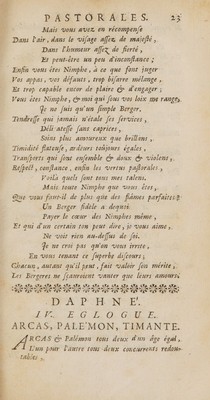 PASTORALES. 23
Mais vous avez en récompense
Dans l'air, dans le visage assez de majesté,
Dans l'humeur assez de fierté,
Et peut-être un peu d'inconstance;
Enfin vous êtes Nimphe, à ce que font juger
Vos appas, vos défauts, trop bizarre mélange,
Et trop capable enfin de plaire & d'engager;
Vous êtes Nimphe, & moi qui sous vos loix me range,
Je ne suis qu'un simple Berger.
Tendresse qui jamais n'étale ses services,
Délicatesse sans caprices,
Soins plus amoureux que brillans,
Timidité flateuse, ardeurs toûjours égales,
Transports qui sont ensemble & doux & violens,
Respect, constance, enfin les vertus pastorales,
Voilà quels sont tous mes talens.
Mais toute Nimphe que vous êtes,
Que vous faut-il de plus que des flâmes parfaites?
Un Berger fidéle a dequoi
Payer le cœur des Nimphes même,
Et qui d'un certain ton peut dire, je vous aime,
Ne voit rien au-dessus de soi.
Je ne croi pas qu'on vous irrite,
En vous tenant ce superbe discours;
Chacun, autant qu'il peut, fait valoir son mérite,
Les Bergeres ne sçauroient vanter que leurs amours.
DAPHNÉ.
IV. EGLOGUE.
ARCAS, PALÉMON, TIMANTE.
ARCAS & Palémon tous deux d'un âge égal,
L'un pour l'autre tous deux concurrents redou-
tables,